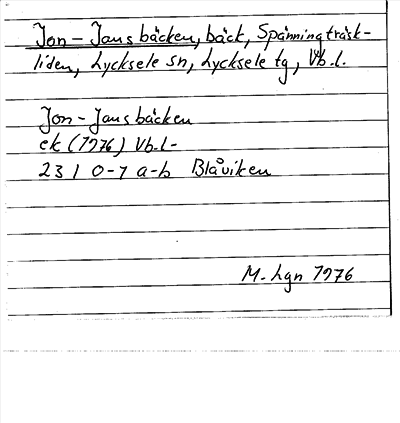 Jon-Jansbäcken, bäck, Spänningträsk-
liden, Lycksele sn, Lycksele tg, Vb.l.
Jon-Jansbäcken
ek (1976) Vb.l-
23 I 0-1 a-b Blåviken
M. Lgn 1976